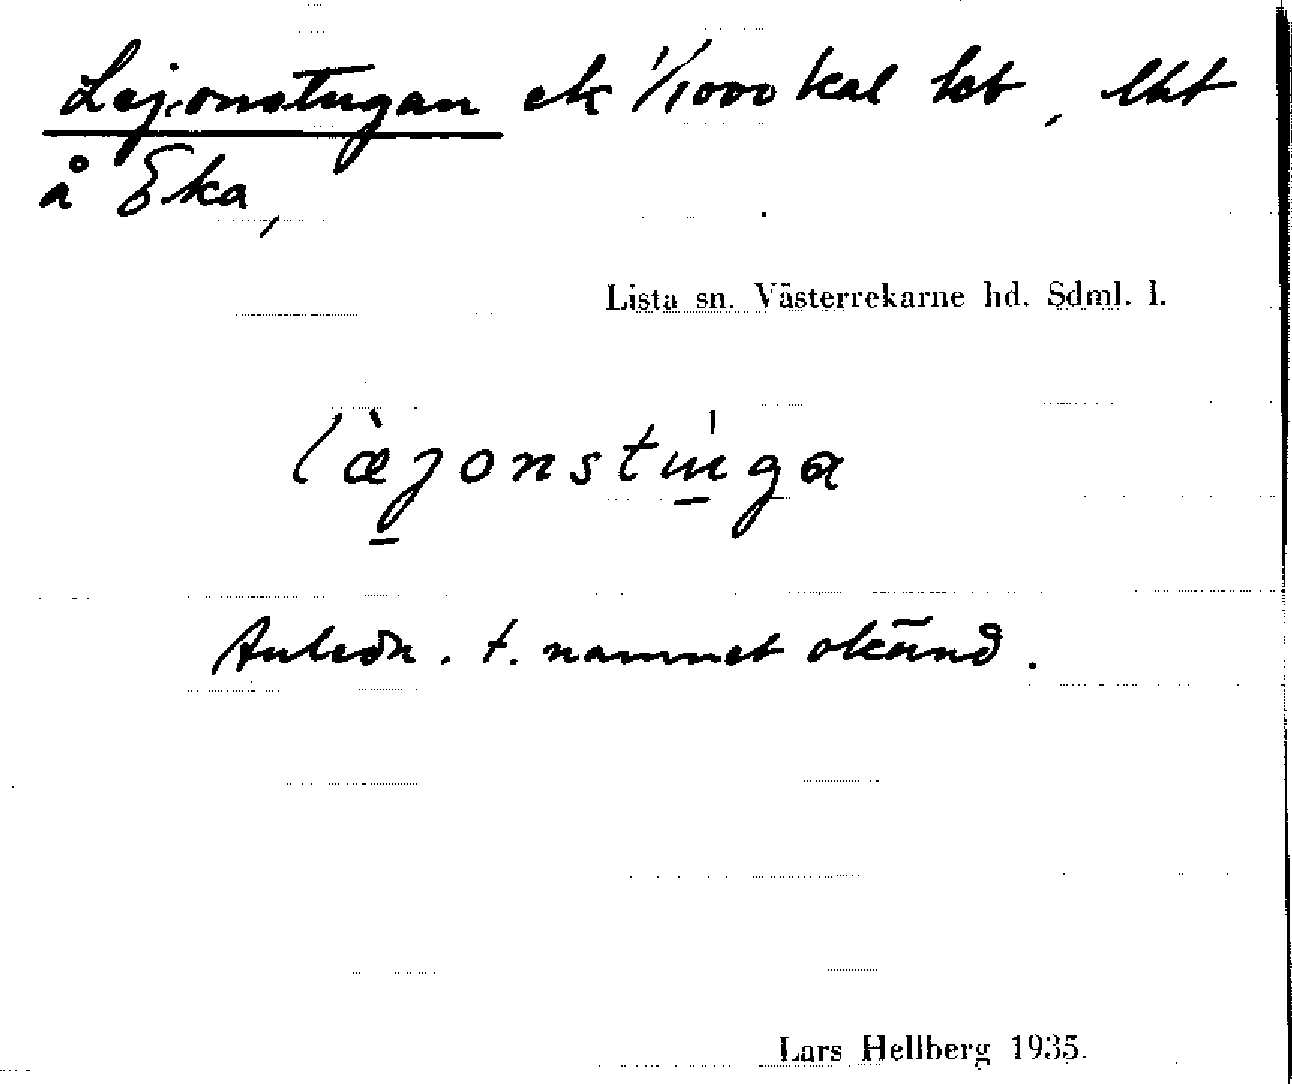 Lejonstugan ek 1/1000 kal kbt, lht
å Eka,
Lista sn. Västerrekarne hd. Sdml. l.
læ̀jonstu̍ga
Anledn. t. namnet okänd.
Lars Hellberg 1935.